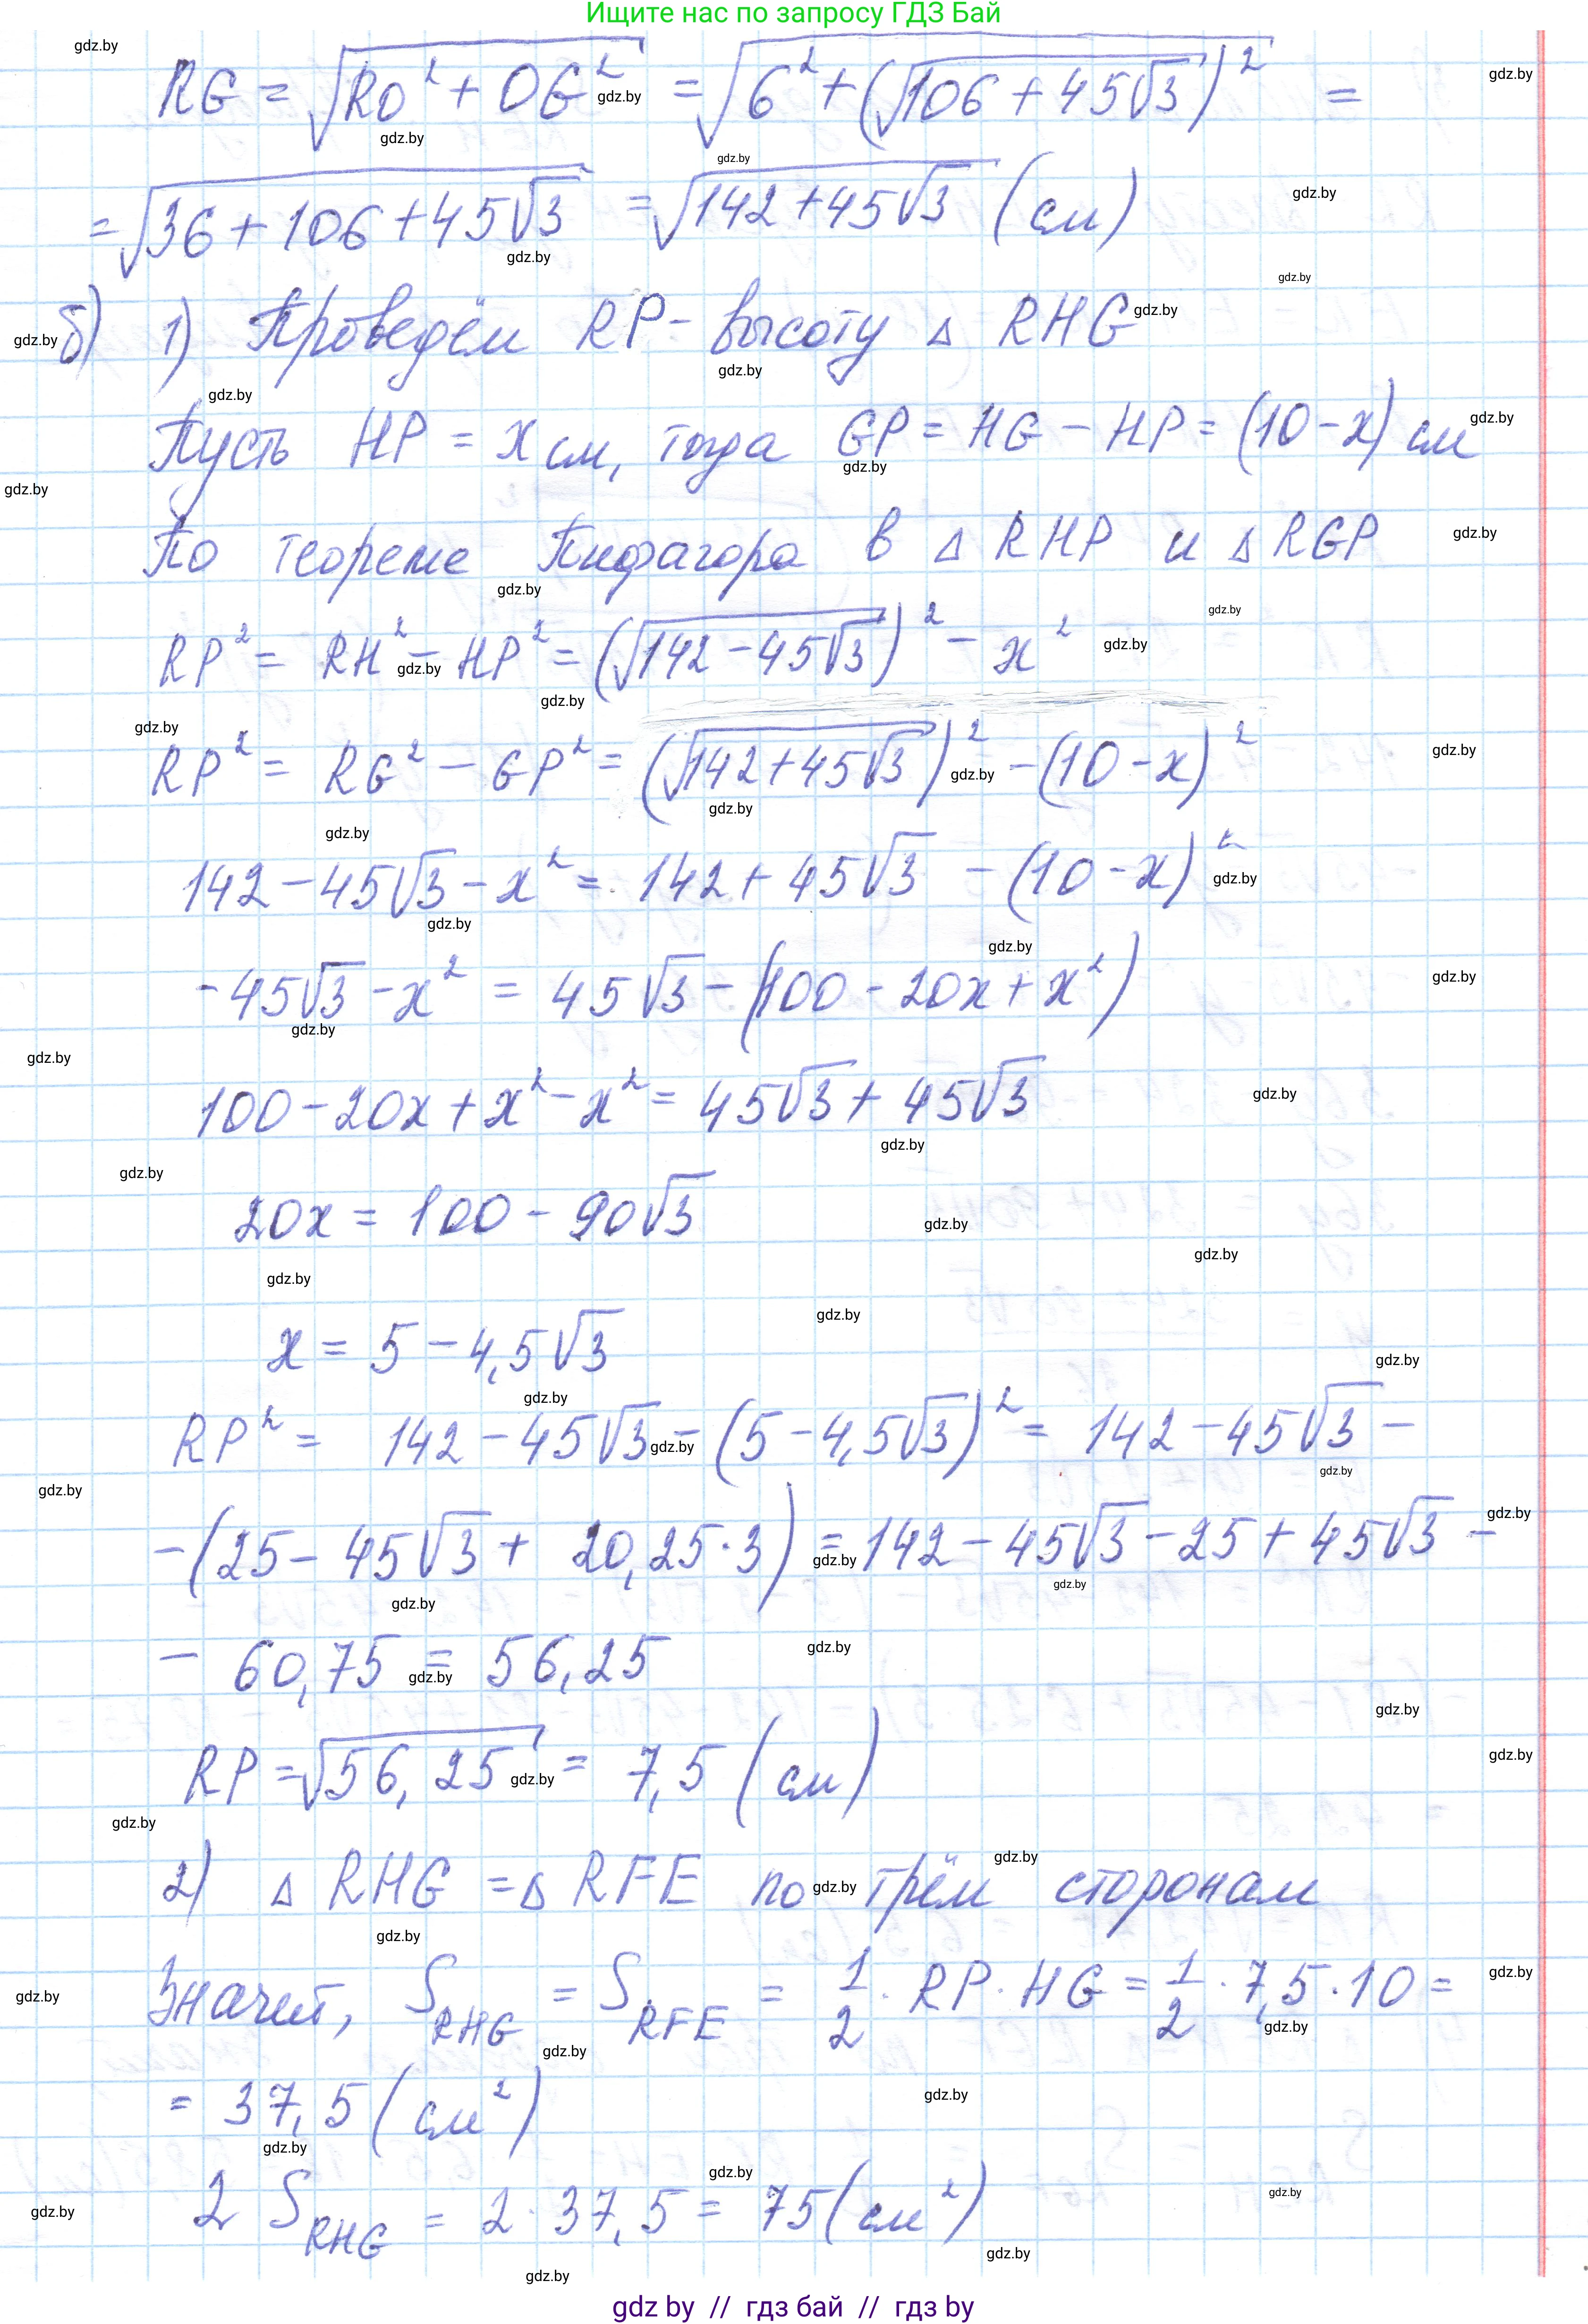 Ищите нас по запросу ГДЗ Бай
RG = √(RO² + OG²) = √(6² + (√(106 + 45√3))²) =
= √(36 + 106 + 45√3) = √(142 + 45√3) (см)
б) 1) Проведём RP - высоту △ RHG
Пусть HP = x см, тогда GP = HG - HP = (10 - x) см
По теореме Пифагора в △ RHP и △ RGP
RP² = RH² - HP² = (√(142 - 45√3))² - x²
RP² = RG² - GP² = (√(142 + 45√3))² - (10 - x)²
142 - 45√3 - x² = 142 + 45√3 - (10 - x)²
-45√3 - x² = 45√3 - (100 - 20x + x²)
100 - 20x + x² - x² = 45√3 + 45√3
20x = 100 - 90√3
x = 5 - 4,5√3
RP² = 142 - 45√3 - (5 - 4,5√3)² = 142 - 45√3 -
- (25 - 45√3 + 20,25·3) = 142 - 45√3 - 25 + 45√3 -
- 60,75 = 56,25
RP = √56,25 = 7,5 (см)
2) △ RHG = △ RFE по трём сторонам
Значит, S RHG = S RFE = 1/2 · RP · HG = 1/2 · 7,5 · 10 =
= 37,5 (см²)
2 S RHG = 2 · 37,5 = 75 (см²)
gdz by // гдз бай // гдз by